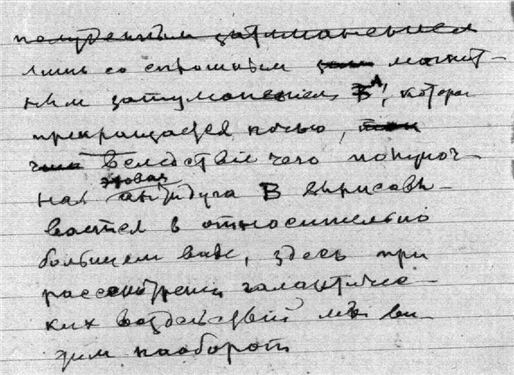 полуденным затуманением
лишь со сплошным магнит-
ным затуманением B, которое
прекращается ночью,
вследствие чего полуноч-
ная антидуга B вырисовы-
вается в относительно
большем виде, здесь при
рассмотрении галактичес-
ких воздействий мы ви-
дим наоборот